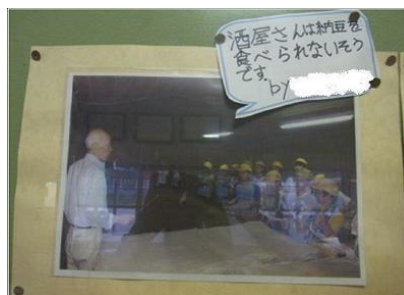 酒屋さんは納豆を
食べられないそう
です。
by